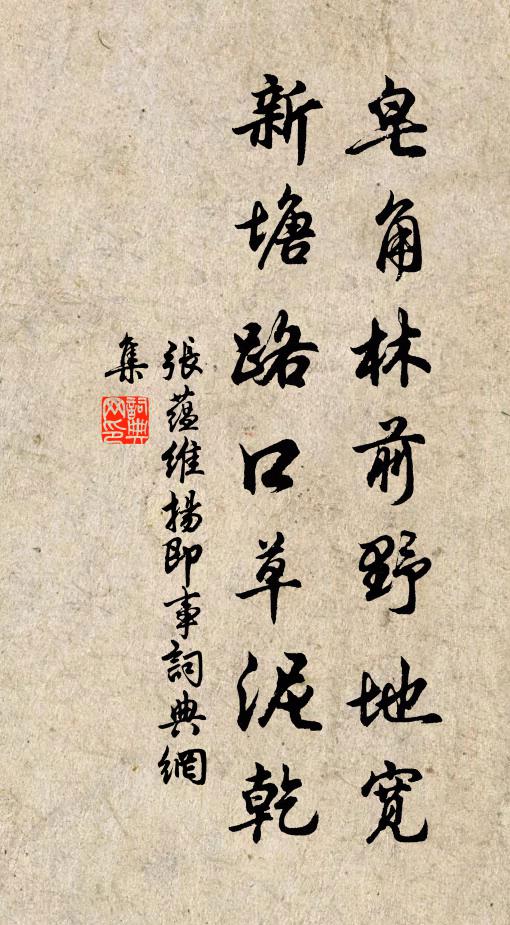 皂角林前野地寬
新塘路口草泥乾
張蕴維揚即事詞典網
集
詞典
网印